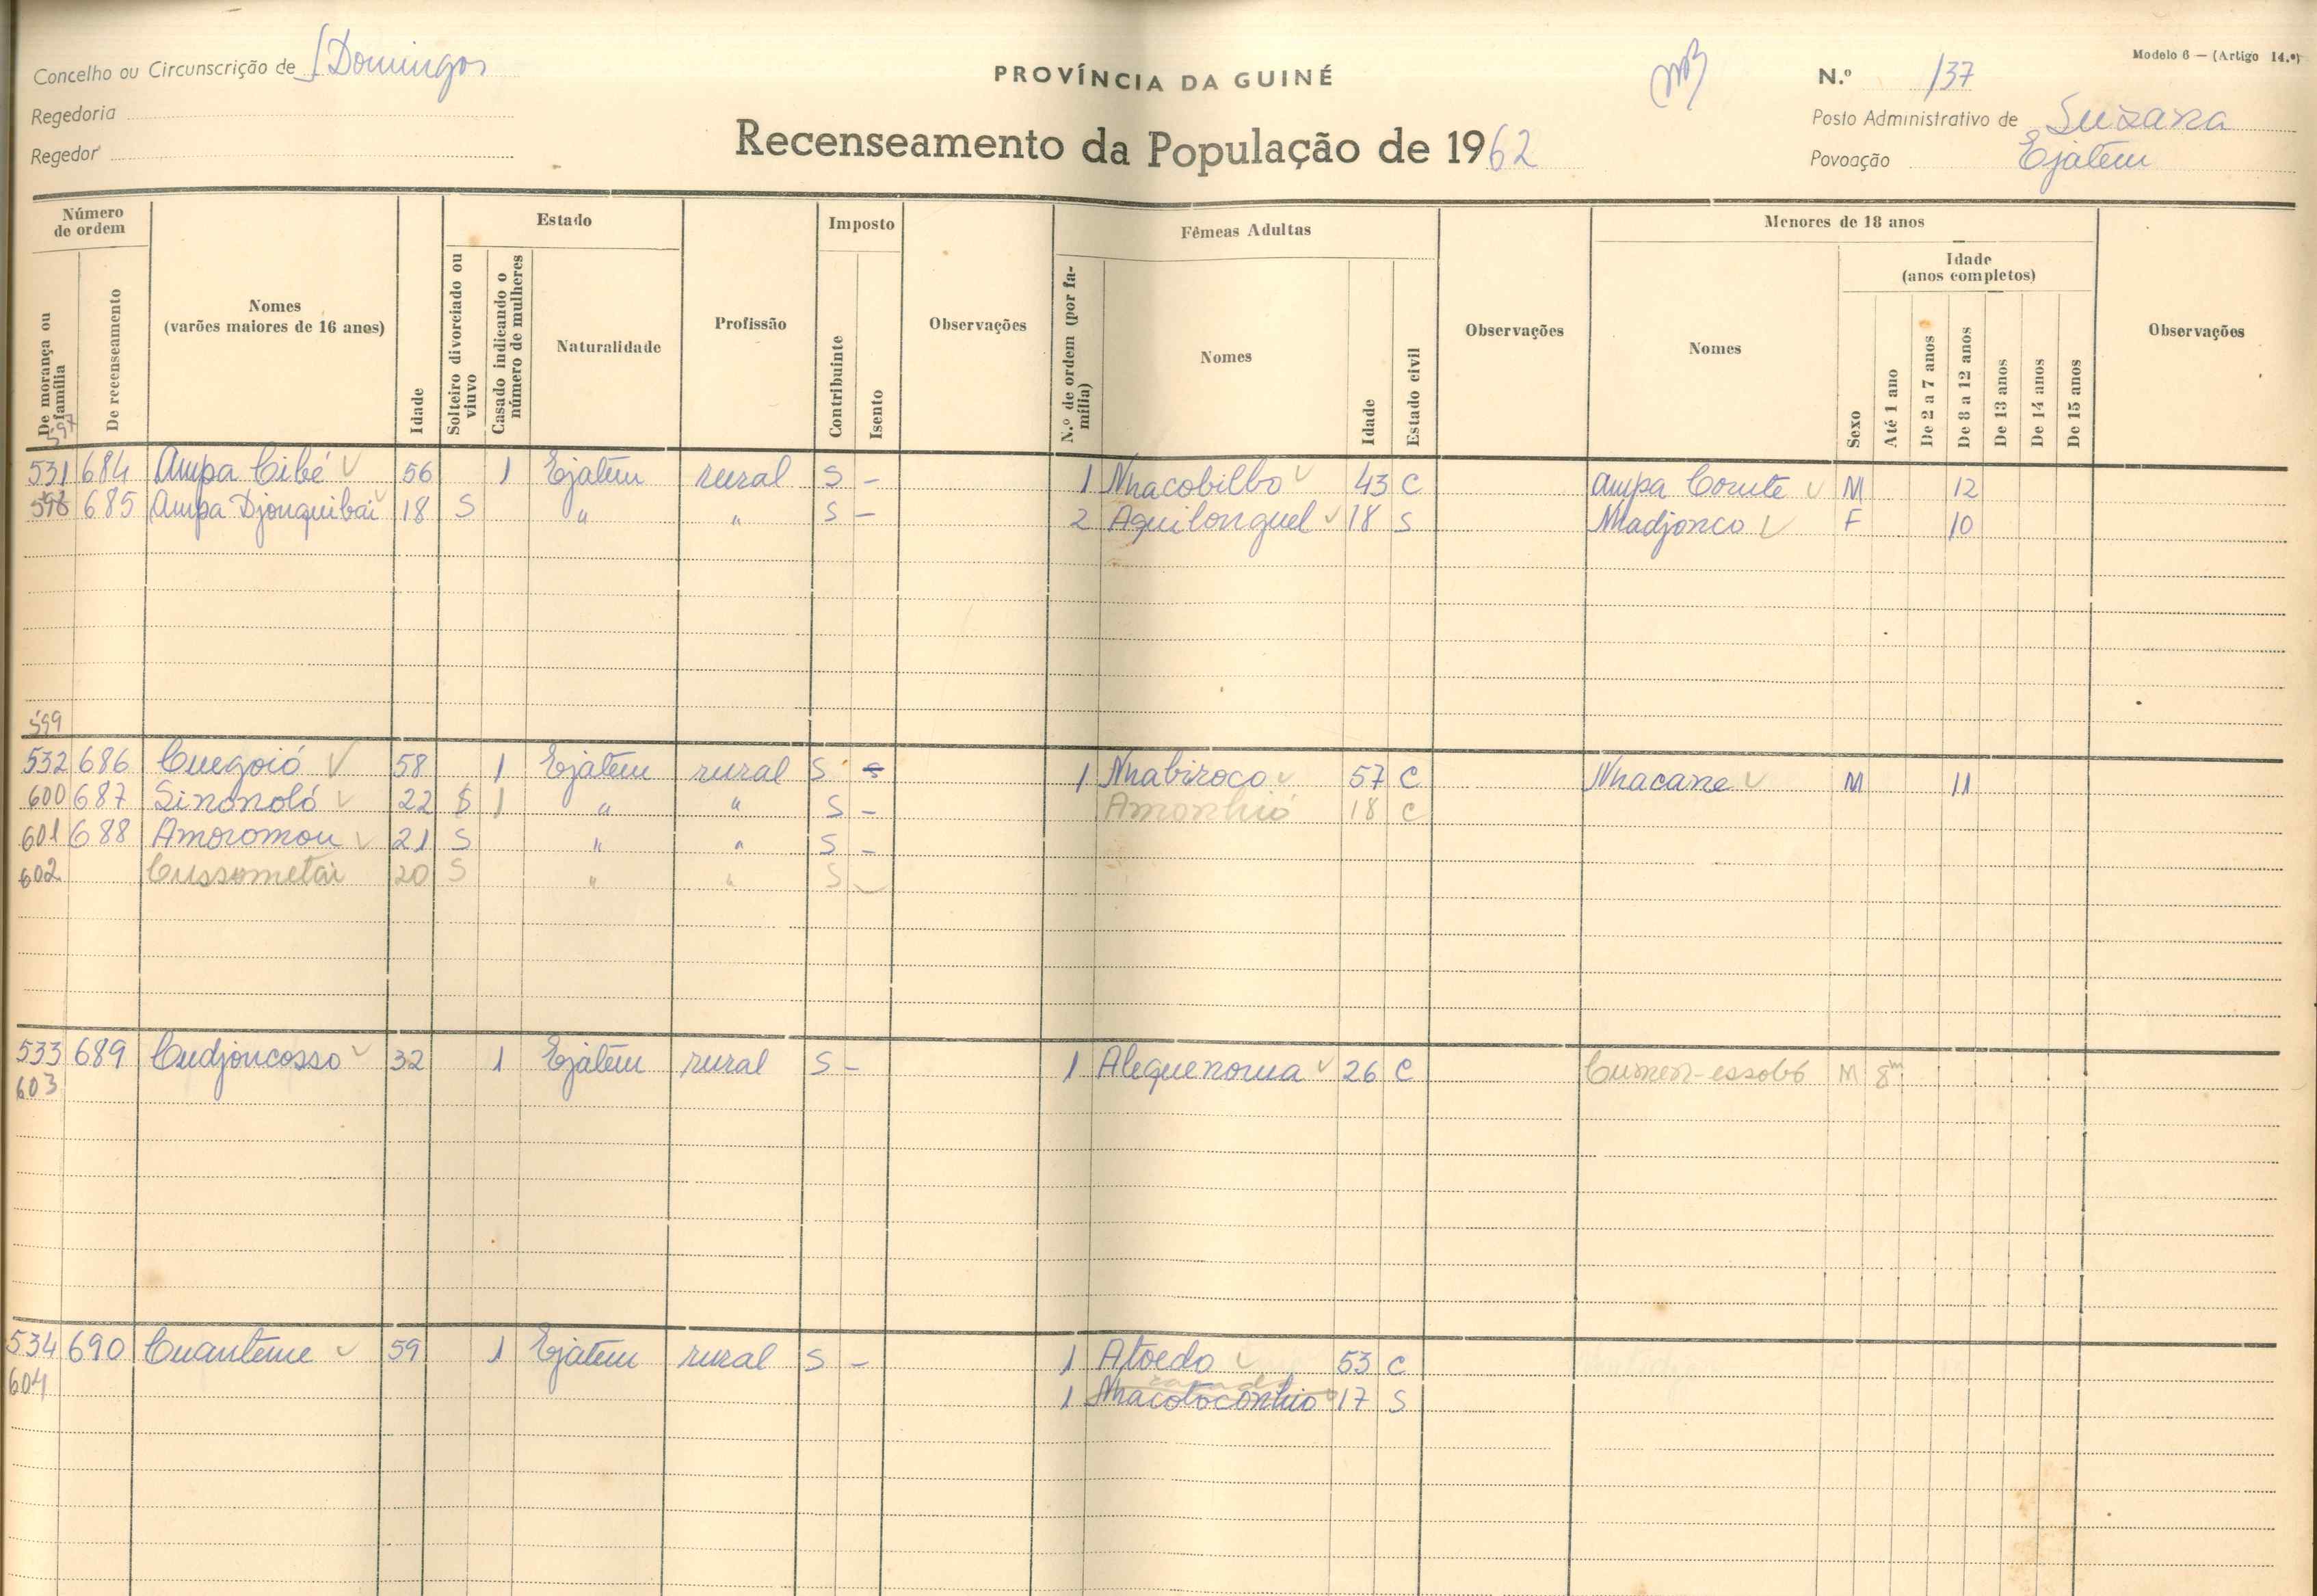 Concelho ou Circunscrição de S Domingos
PROVÍNCIA DA GUINÉ
N.º 137
Modelo 6 — (Artigo 14.º)
Regedoria
Posto Administrativo de Suzana
Regedor
Recenseamento da População de 1962
Povoação Ejatem
Número de ordem
De morança ou família
De recenseamento
Nomes (varões maiores de 16 anos)
Idade
Estado
Solteiro divorciado ou viuvo
Casado indicando o número de mulheres
Naturalidade
Profissão
Imposto
Contribuinte
Isento
Observações
Fêmeas Adultas
N.º de ordem (por família)
Nomes
Idade
Estado civil
Observações
Menores de 18 anos
Nomes
Sexo
Idade (anos completos)
Até 1 ano
De 2 a 7 anos
De 8 a 12 anos
De 13 anos
De 14 anos
De 15 anos
Observações
597
531 684 Ampa Cibé 56 1 Ejatem rural S - 1 Nhacobilbo 43 C Ampa Comte M 12
598 685 Ampa Djonquibai 18 S " " S - 2 Aquilonguel 18 S Nhadjonco F 10
599
532 686 Cuegoió 58 1 Ejatem rural S - 1 Nhabiroco 57 C Nhacane M 11
600 687 Sinonoló 22 S 1 " " S - Amonhió 18 C
601 688 Amoromou 21 S " " S -
602 Cussometai 20 S " " S -
533 689 Cudjoncosso 32 1 Ejatem rural S - 1 Alequenoma 26 C Cumen-essobó M 8m
603
534 690 Cuanteme 59 1 Ejatem rural S - 1 Atoedo 53 C
604 1 Nhacotoconhio 17 S